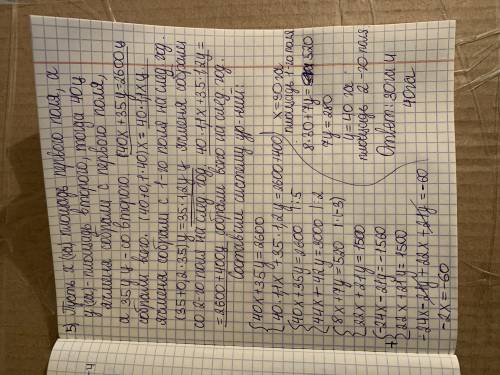 5) Пусть x (га) площадь первого поля, а
y (га) - площадь второго, тогда 40x ц
ячменя собрали с первого поля,
а 35y ц - со второго. (40x+35y)=2600 ц
собрали всего. (40+0,1·40)x = 40·1,1x ц
ячменя собрали с 1-го поля на след. год.
(35+0,2·35)y = 35·1,2y ц ячменя собрали
со 2-го поля на след. год. 40·1,1x+35·1,2y =
= 2600+400 ц собрали всего на след. год.
Составим систему ур-ний:
{40x+35y=2600
{40·1,1x+35·1,2y=2600+400
{40x+35y=2600 |:5
{44x+42y=3000 |:2
{8x+7y=520 |·(-3)
{22x+21y=1500
+{-24x-21y=-1560
{22x+21y=1500
-24x-21y+22x+21y=-60
-2x=-60
x=30 га
площадь 1-го поля
8·30+7y=520
7y=280
y=40 га
площадь 2-го поля
Ответ: 30 га и
40 га